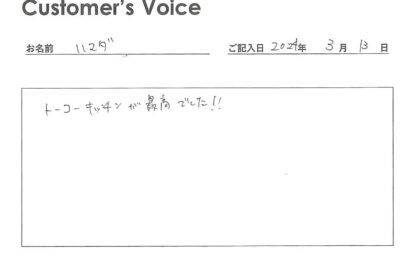 Customer's Voice
お名前 ハスダ ご記入日 2024年 3月 13日
トーコーキッチンが最高でした!!